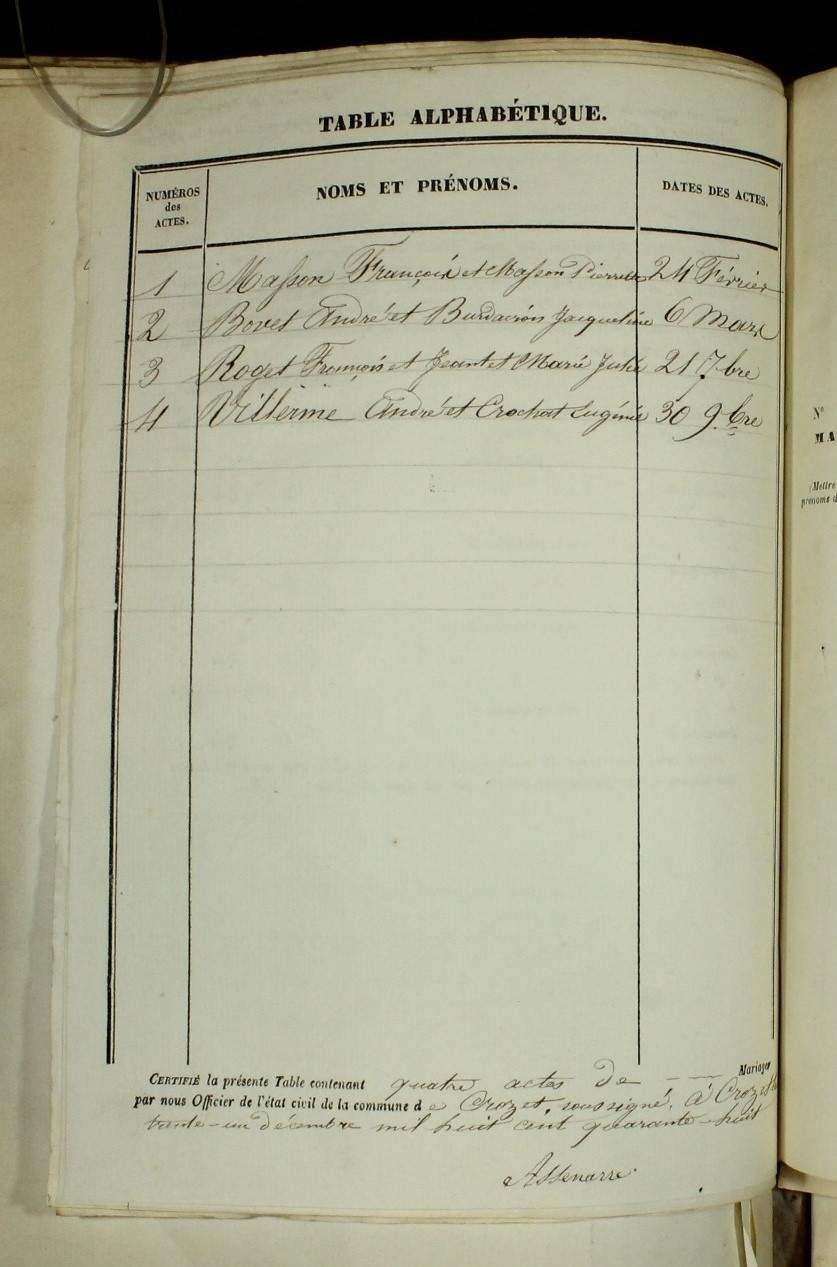 TABLE ALPHABÉTIQUE.
NUMÉROS
des
ACTES.
NOMS ET PRÉNOMS.
DATES DES ACTES.
1 Masson François et Masson Pierrette 24 Février
2 Bovet André et Burdairon Jacqueline 6 Mars
3 Roget François et Jeantet Marie Julie 21 7.bre
4 Villerme André et Crochat Eugénie 30 9.bre
CERTIFIÉ la présente Table contenant quatre actes de Mariages
par nous Officier de l'état civil de la commune de Crozet, soussigné. à Crozet le
trente-un décembre mil huit cent quarante-huit
N°
MA
(Mettre
prénoms d